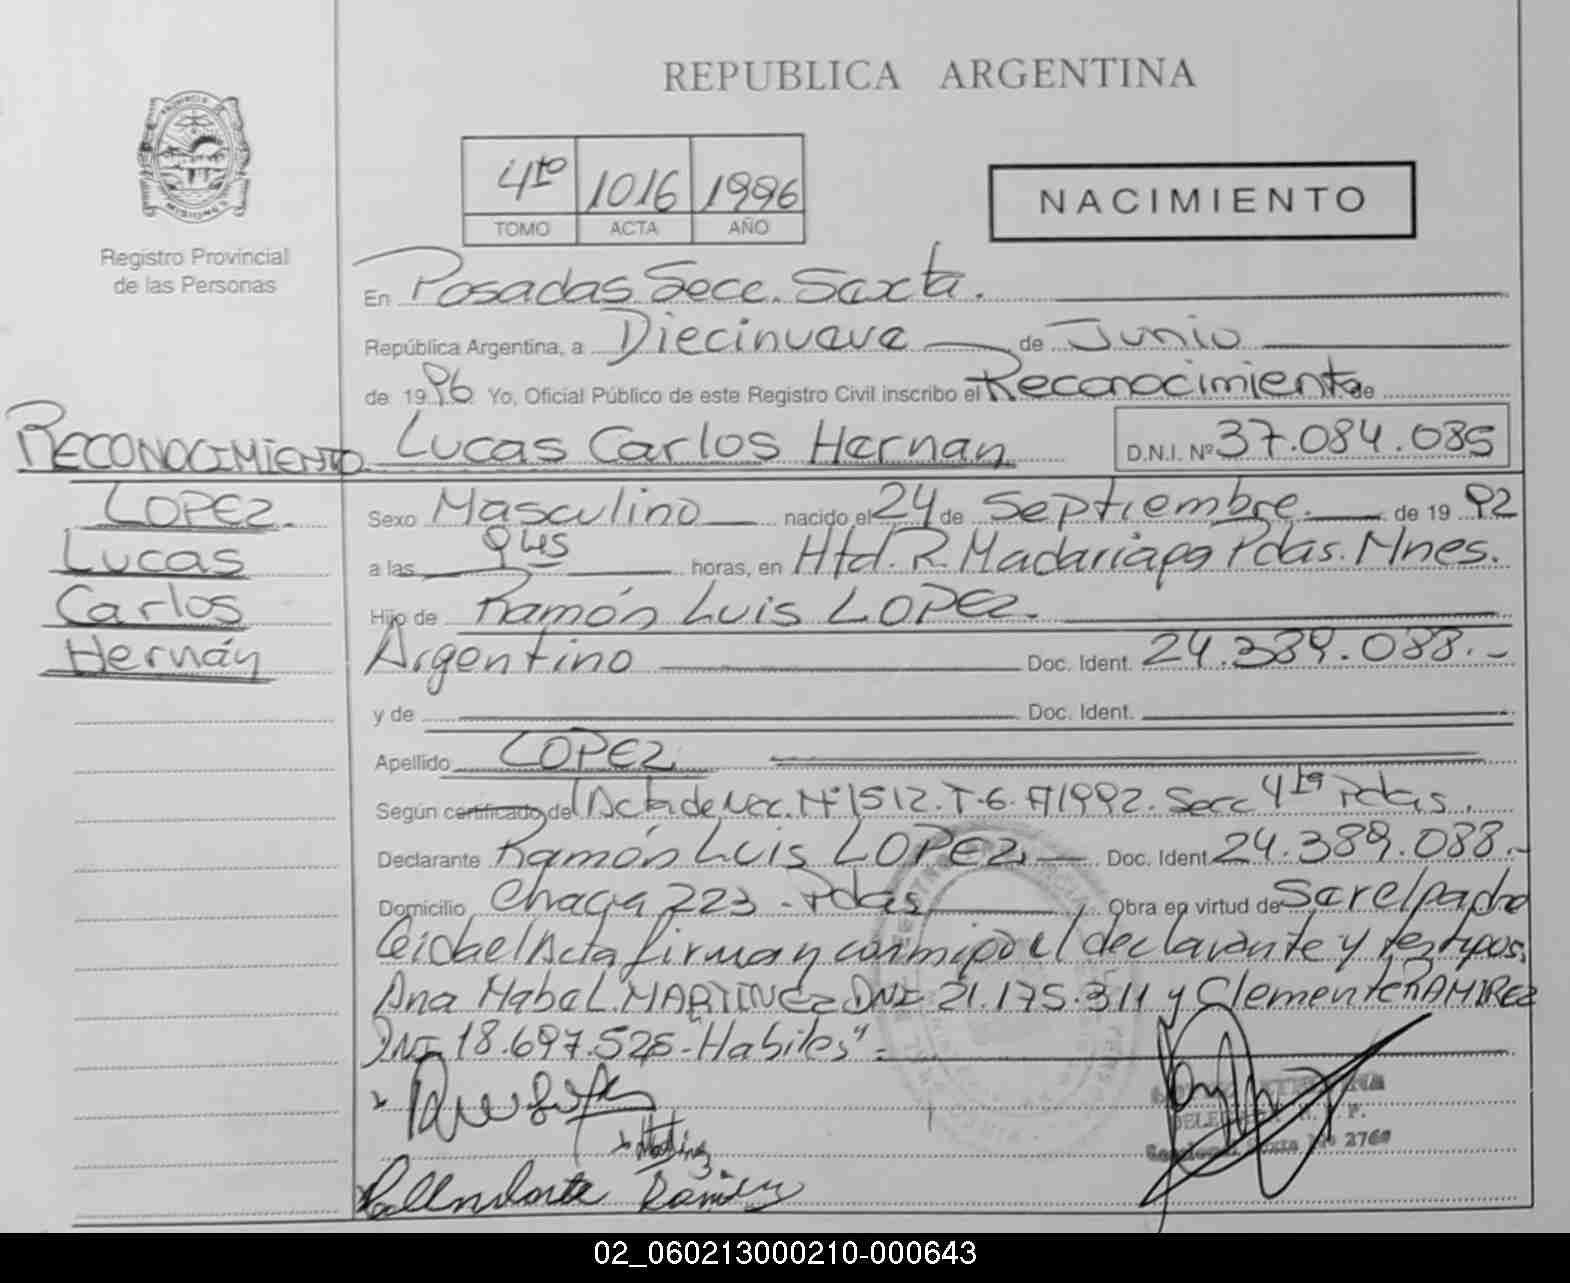 REPUBLICA ARGENTINA
PROVINCIA DE MISIONES
Registro Provincial
de las Personas
4to 1016 1996
TOMO ACTA AÑO
NACIMIENTO
En Posadas Secc. Sexta.
República Argentina, a Diecinueve de Junio
de 1996 Yo, Oficial Público de este Registro Civil inscribo el Reconocimiento de
RECONOCIMIENTO Lucas Carlos Hernan D.N.I. Nº 37.084.085
LOPEZ.
Lucas
Carlos
Hernán
Sexo Masculino nacido el 24 de Septiembre. de 19 92
a las horas, en Htal. R. Madariaga Pdas. Mnes.
Hijo de Ramón Luis LOPEZ.
Argentino Doc. Ident. 24.389.088.-
y de Doc. Ident.
Apellido LOPEZ
Según certificado del Acta de Nac. Nº 1512. T-6. A/1992. Secc 4ta Pdas.
Declarante Ramón Luis LOPEZ Doc. Ident 24.389.088.-
Domicilio Chaga 223 - Pdas Obra en virtud de Ser el padre
Leida el Acta firman conmigo el declarante y testigos.
Ana Mabel MARTINEZ DNI 21.175.311 y Clemente RAMIREZ
DNI 18.697.525 - Habiles"-
Nº 2760
02_060213000210-000643